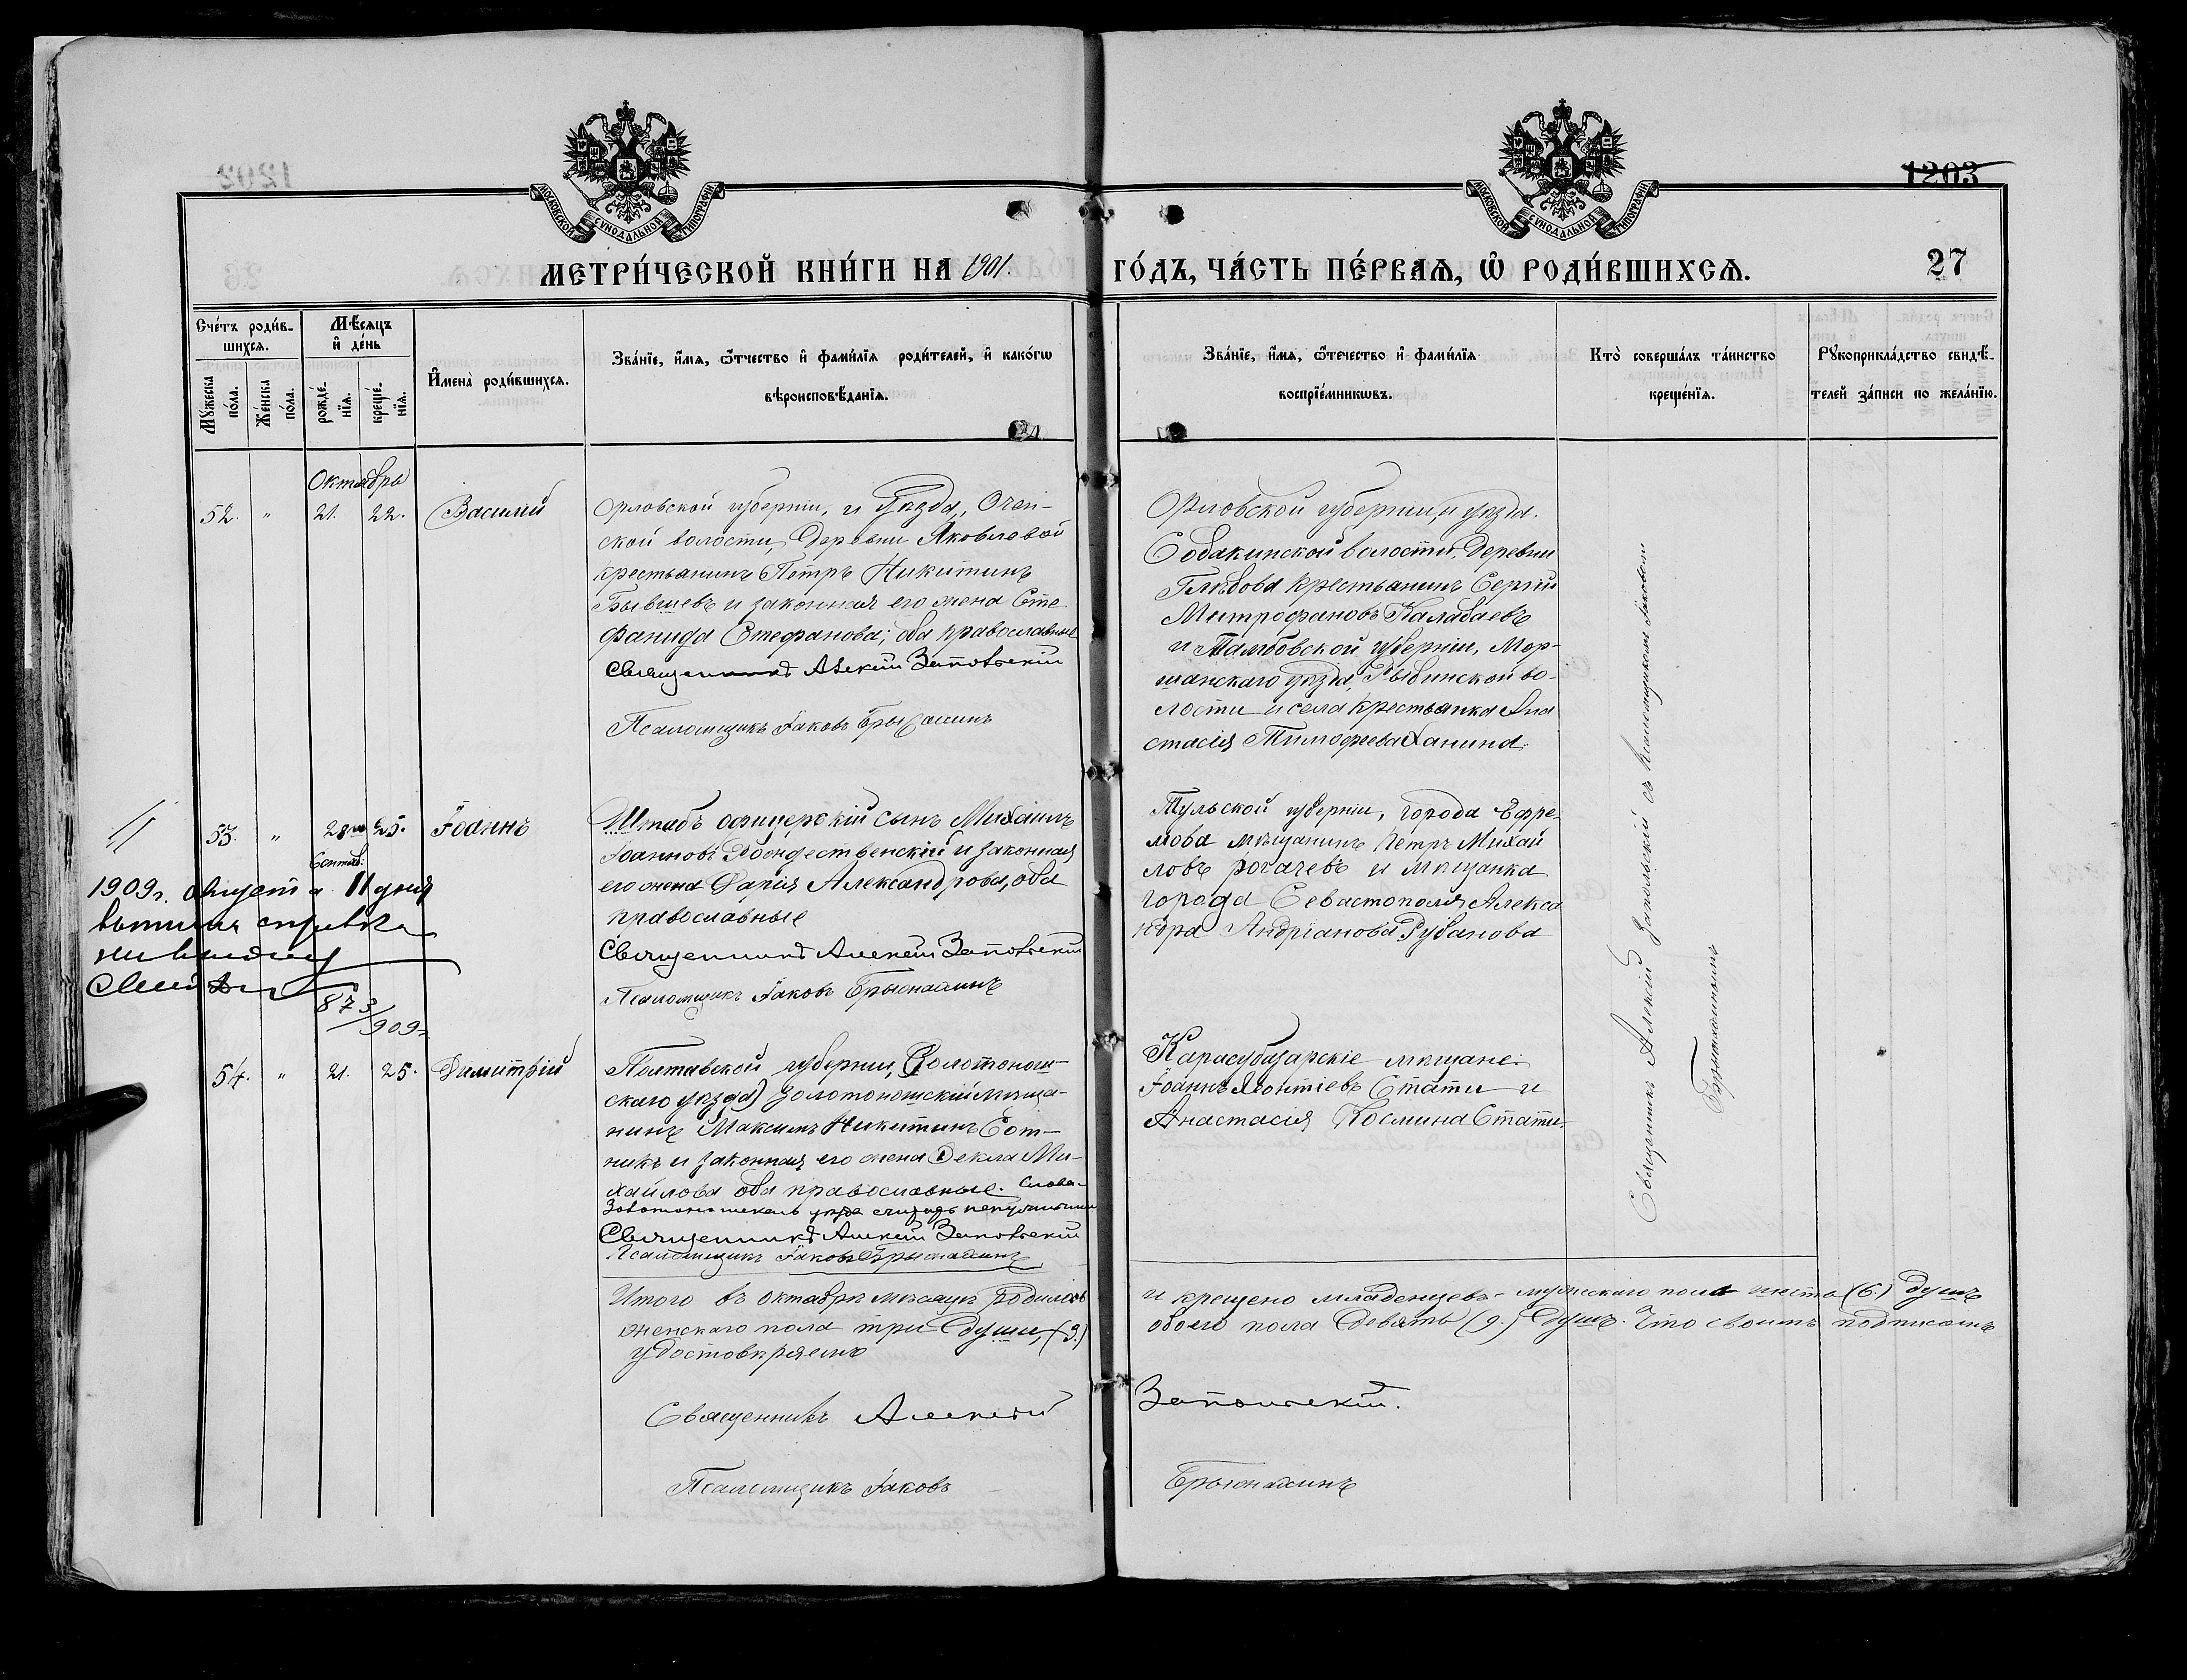 1203
МОСКОВСКОЙ СѴНОДАЛЬНОЙ ТИПОГРАФІИ
МОСКОВСКОЙ СѴНОДАЛЬНОЙ ТИПОГРАФІИ
МЕТРИ́ЧЕСКОЙ КНИ́ГИ НА 1901. ГО́ДЪ, ЧА́СТЬ ПЕ́РВАѦ, Ѽ РОДИ́ВШИХСѦ.
27
Сче́тъ роди́в-
шихсѧ.
Мꙋ́жеска
по́ла.
Же́нска
по́ла.
Мѣ́сѧцъ
и҆ де́нь
рожде́-
нїѧ.
креще́-
нїѧ.
И҆мена̀ роди́вшихсѧ.
Зва́нїе, и҆́мѧ, ѻ҆́тчество и҆ фами́лїѧ роди́телей, и҆ како́гѡ
вѣроисповѣ́данїѧ.
Зва́нїе, и҆́мѧ, ѻ҆́течество и҆ фами́лїѧ
воспрїе́мникѡвъ.
Кто̀ соверша́лъ та́инство
креще́нїѧ.
Рꙋкоприкла́дство свидѣ́-
телей за́писи по жела́нїю.
Октябрь
52. " 21. 22. Василій
Орловской губерніи, и уѣзда,
ской волости, Деревни Яковлевой
крестьянинъ Петръ Никитинъ
Бывшевъ и законная его жена Сте
фанида Стефанова; оба православные
Священникъ Алексій Запольскій
Псаломщикъ Іаковъ
Орловской губерніи, и уѣзда.
Собакинской волости, Деревни
Глѣбова крестьянинъ Сергій
Митрофановъ Калабаевъ
и Тамбовской губерніи, Мор-
шанскаго уѣзда, Рыбинской во-
лости и села крестьянка Ана
стасія Тимофеева Ханина.
53. " 28го 25. Іоаннъ
Сентяб:
Штабъ офицерскій сынъ Михаилъ
Іоанновъ Рождественскій и законная
его жена Дарія Александрова, оба
православные
Священникъ Алексій Запольскій
Псаломщикъ Іаковъ
Тульской губерніи, города Ефре-
мова мѣщанинъ Петръ Михай
ловъ Рогачевъ и мѣщанка
города Севастополя Алекса
ндра Андріанова Рубанова
1909г. августа 11 дня
справка
873/909г.
54. " 21. 25. Димитрій
Полтавской губерніи, (Золотонош-
скаго уѣзда) Золотоношскій мѣща-
нинъ Максимъ Никитинъ Сот-
никъ и законная его жена Ѳекла Ми-
хайлова оба православные. Слова-
Золотоношскаго уѣзда считать
Священникъ Алексій Запольскій
Псаломщикъ Іаковъ
Карасубазарскіе мѣщане:
Іоаннъ Леонтіевъ Стати и
Анастасія Космина Стати.
Священникъ Алексій Запольскій съ псаломщикомъ Іаковомъ
Итого въ октябрѣ мѣсяцѣ родилось и крещено младенцевъ - мужескаго пола шесть (6.) душъ
женскаго пола три души, (3.) обоего пола девять (9.) душъ. Что своимъ подписомъ
удостовѣряемъ
Священникъ Алексій Запольскій.
Псаломщикъ Іаковъ